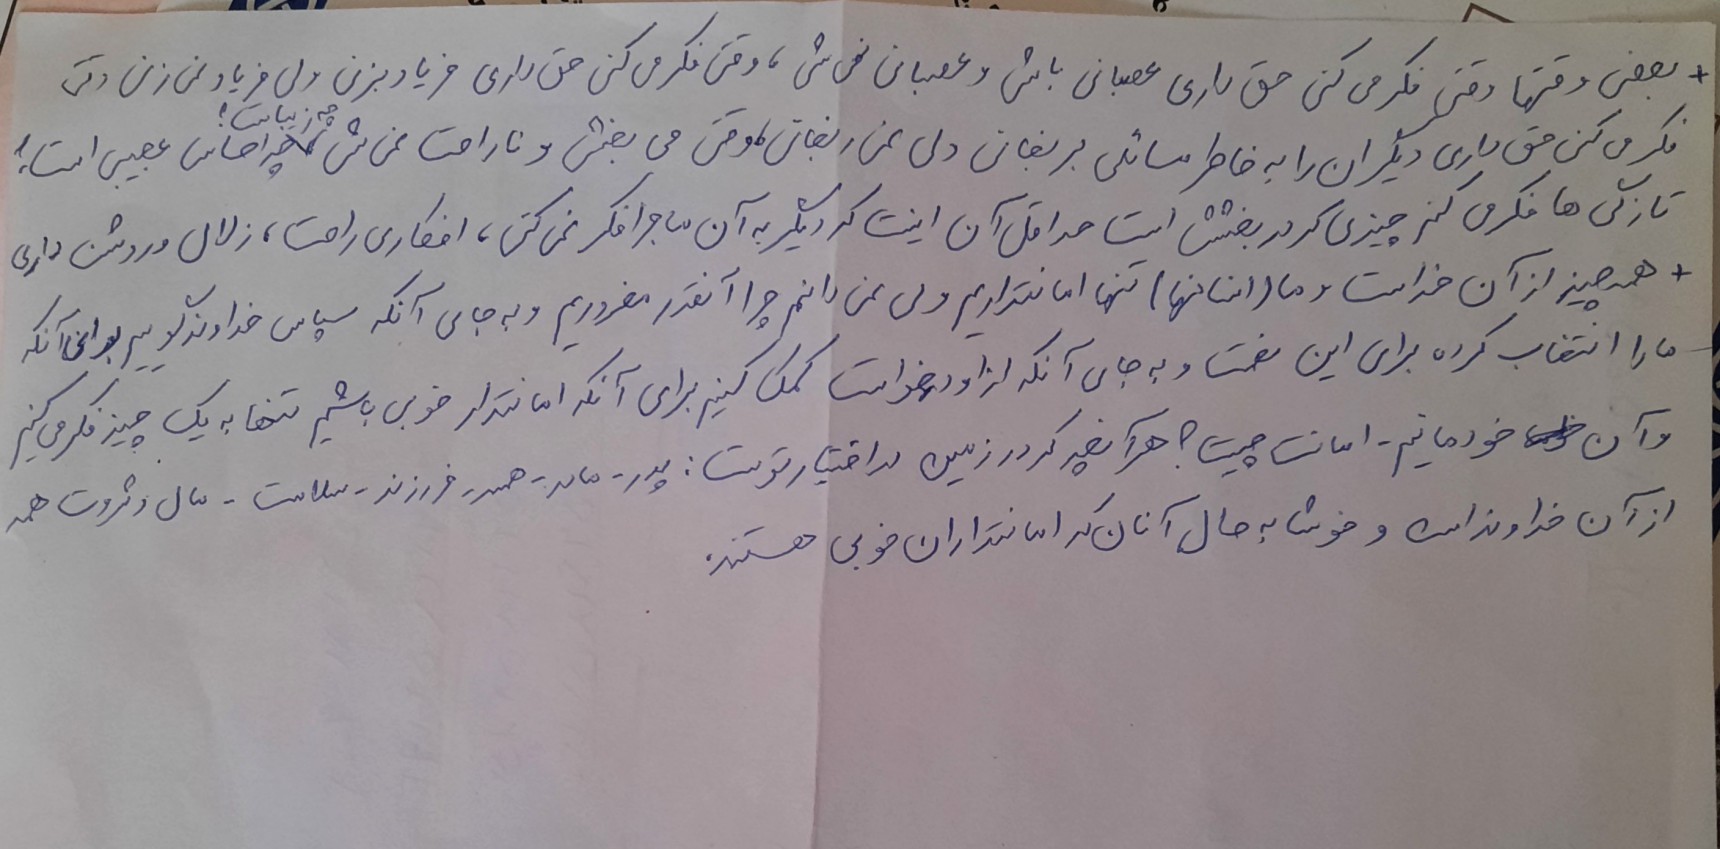 + بعضی وقتها وقتی فکر می کنی حق داری عصبانی باشی و عصبانی نمی شی، وقتی فکر می کنی حق داری فریاد بزنی ولی فریاد نمی زنی وقتی
چه زیباست!
فکر می کنی حق داری دیگران را به خاطر مسائلی برنجانی ولی نمی رنجانی و وقتی می بخشی و ناراحت نمی شی چه احساس عجیبی است!
تازگی ها فکر می کنم چیزی که در بخشش است حداقل آن اینست که دیگر به آن ماجرا فکر نمی کنی، افکاری راحت، زلال و روشن داری
+ همه چیز از آن خداست و ما (انسانها) تنها امانتداریم ولی نمی دانم چرا آنقدر مغروریم و به جای آنکه سپاس خداوند گوییم برای آنکه
ما را انتخاب کرده برای این نعمت و به جای آنکه از او درخواست کمک کنیم برای آنکه امانتدار خوبی باشیم تنها به یک چیز فکر می کنیم
و آن خود مانیم - امانت چیست؟ هر آنچه که در زمین در اختیار توست: پدر - مادر - همسر - فرزند - سلامت - مال و ثروت همه
از آن خداوند است و خوشا به حال آنان که امانتداران خوبی هستند.